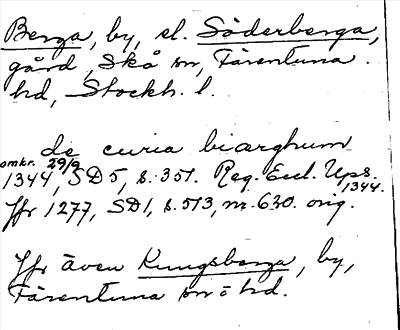 Berga, by, el. Söderberga,
gård, Skå sn, Färentuna
hd, Stockh. l.
de curia biærghum
omkr. 29/9
1344, SD 5, s. 351. Reg. Eccl. Ups.
1344.
Jfr 1277, SD 1, s. 513, nr. 630. orig.
Jfr även Kungsberga, by,
Färentuna sn o hd.